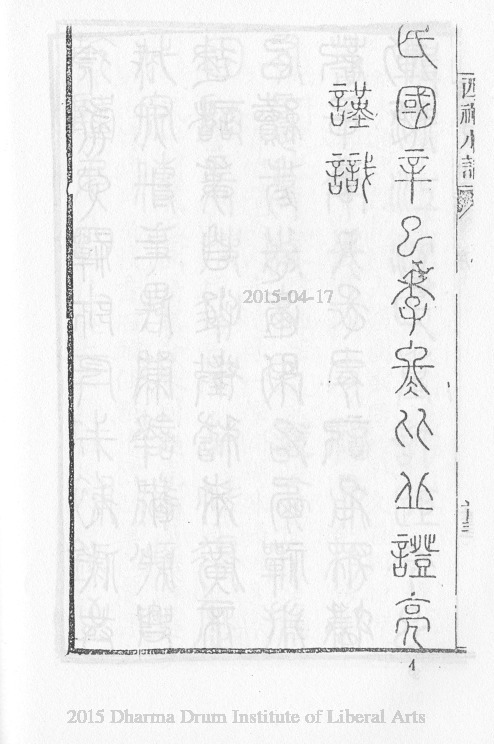 民國辛巳季冬比丘證亮
謹識
2015-04-17
4
2015 Dharma Drum Institute of Liberal Arts